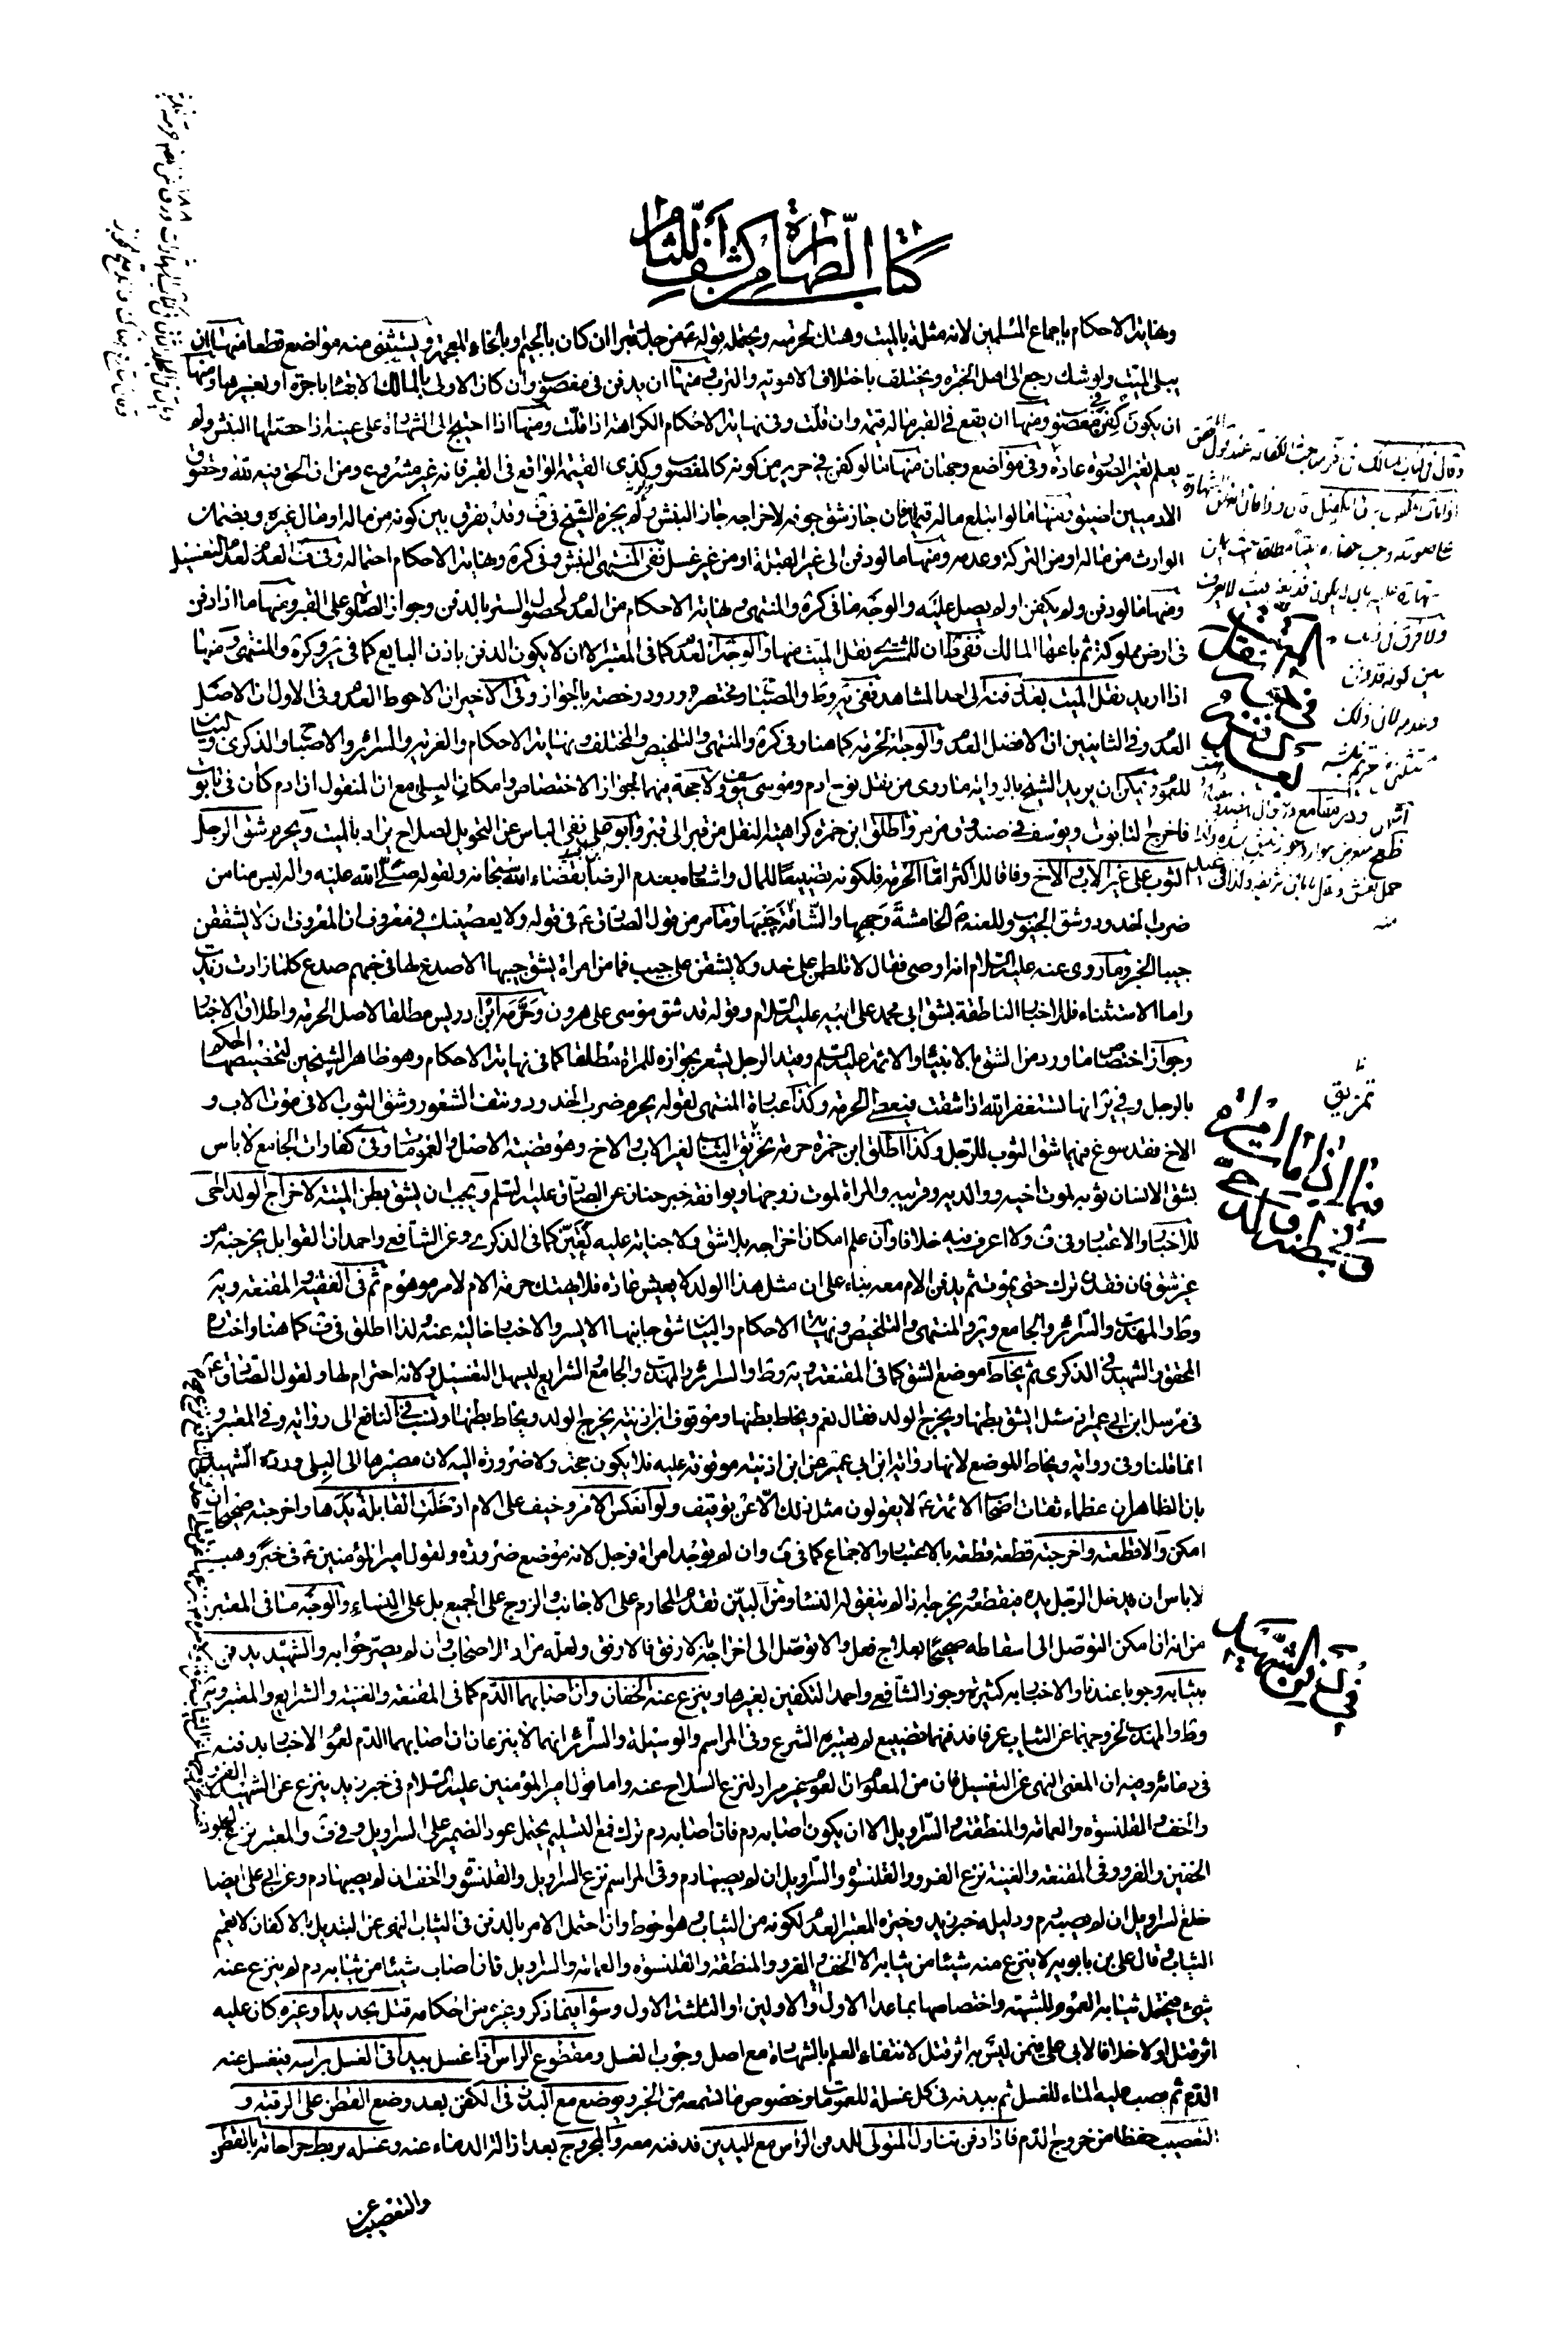 كتاب الطهارة من كشف اللثام
ونهاية الاحكام باجماع المسلمين لانه مثلة بالميت وهتك لحرمته ويحتمله قوله من جدد قبرا ان كان بالجيم او بالخاء المعجمة ويستثنى منه مواضع قطعا منها ان
يبلى الميت ولو شك رجع الى اهل الخبرة ويختلف باختلاف الاهوية والترب ومنها ان يدفن في مغصوب وان كان الاولى بالمالك الابقاء باجرة او بغيرها ومنها
ان يكون كفن في مغصوب ومنها ان يقع في القبر ماله قيمة وان قلّت وفي نهاية الاحكام الكراهة اذا قلّت ومنها اذا احتيج الى الشهادة على عينه اذا حصلها النبش ولم
يعلم تغير الصورة عادة وفي مواضع وجهان منها ما لو كفن في حرير من كونه كالمغصوب وكذي القيمة الواقع في القبر فانه غير مشروع ومن ان الحق فيه لله وحقوق
الادميين اضيق ومنها ما لو ابتلع ماله قيمة فان جاز شق جوفه لاخراجه جاز النبش ولم يجزه الشيخ في ف وقد يفرق بين كونه من ماله او مال غيره وبضمان
الوارث من ماله او من التركة وعدمه ومنها ما لو دفن الى غير القبلة او من غير غسل ففي المنتهى النبش وفي كره ونهاية الاحكام احتماله وفي ف العدم لعدم التغسيل
ومنها ما لو دفن ولم يكفن او لم يصل عليه والوجه ما في كره والمنتهى ونهاية الاحكام من العدم لحصول الستر بالدفن وجواز الصلوة على القبر ومنها ما اذا دفن
في ارض مملوكة ثم باعها المالك ففي ط ان للمشتري نقل الميت منها والوجه العدم كما في المعتبر الا ان لا يكون الدفن باذن البايع كما في ير وكره والمنتهى ومنها
اذا اريد نقل الميت بعد دفنه الى احد المشاهد ففي يه وط والمصباح ومختصره ورود رخصة بالجواز وفي الاخير ان الاحوط العدم وفي الاول ان الاصل
العدم وفي الثانيين ان الافضل العدم والوجه الحرمة كما هنا وفي كره والمنتهى والتلخيص والمختلف ونهاية الاحكام والغرية والسرائر والاصباح والذكرى والبيان
للعموم ويمكن ان يريد الشيخ بالرواية ما روى من نقل نوح ادم وموسى يوسف ولا حجة فيهما لجواز الاختصاص وامكان البلى مع ان المنقول ان ادم كان في تابوت
فاخرج التابوت ويوسف في صندوق مرمر واطلق ابن حمزة كراهية النقل من قبر الى قبر وابو علي نفى الباس عن التحويل لصلاح يراد بالميت ويحرم شق الرجل
الثوب على غير الاب والاخ وفاقا للاكثر اما الحرمة فلكونه تضييعا للمال واشعاره بعدم الرضا بقضاء الله سبحانه ولقوله صلى الله عليه واله ليس منا من
ضرب الخدود وشق الجيوب وللعنه الخامشة وجهها والشاقة جيبها وما مر من قول الصادق ع في قوله ولا يعصينك في معروف ان المعروف ان لا يشققن
جيبا الخبر وما روى عنه عليه السلام انه اوصى فقال لا تلطمن على خد ولا يشقن على جيب فما من امراة يشق جيبها الا صدع لها في جهنم صدع كلما زادت زيدت
واما الاستثناء فللاخبار الناطقة بشق ابي محمد على ابيه عليه السلام وقوله قد شق موسى على هرون وحرمه ابن ادريس مطلقا لاصل الحرمة واطلاق الاخبار
وجواز اختصاص ما ورد من الشق بالانبياء والائمة عليهم السلم وقيد الرجل يشعر بجوازه للمراة مطلقا كما في نهاية الاحكام وهو ظاهر الشيخين لتخصيصهما الحكم
بالرجل وفي ير انها تستغفر الله اذا شقت فيعطي الحرمة وكذا عبارة المنتهى لقوله يحرم ضرب الخدود ونتف الشعور وشق الثوب الا في موت الاب و
الاخ فقد سوغ فيهما شق الثوب للرجل وكذا اطلق ابن حمزة حرمة تخريق الثياب لغير الاب والاخ وهو قضية الاصل والعمومات وفي كفارات الجامع لا باس
بشق الانسان ثوبه لموت اخيه ووالديه وقريبه والمراة لموت زوجها ويوافقه خبر حنان عن الصادق عليه السلم ويجب ان يشق بطن الميتة لاخراج الولد الحي
للاخبار والاعتبار وفي ف ولا اعرف فيه خلافا وان علم امكان اخراجه بلا شق ولا جناية عليه تعين كما في الذكرى وعن الشافعي واحمد ان القوابل يخرجنه من
غير شق فان فقدن ترك حتى يموت ثم يدفن الام معه بناء على ان مثل هذا الولد لا يعيش عادة فلا يهتك حرمة الام لامر موهوم ثم في الفقيه والمقنعة ويه
وط والمهذب والسرائر والجامع وير والمنتهى والتلخيص ونهاية الاحكام والبيان شق جانبها الايسر والاخبار خالية عنه ولذا اطلق في ف كما هنا واختاره
المحقق والشهيد في الذكرى ثم يخاط موضع الشق كما في المقنعة ويه وط والسرائر والمهذب والجامع والشرايع ليسهل التغسيل ولانه احترام لها ولقول الصادق ع
في مرسل ابن ابي عمير انه سئل ايشق بطنها ويخرج الولد فقال نعم ويخاط بطنها وموقوف ابن اذينة يخرج الولد ويخاط بطنها ونسب في النافع الى رواية وفي المعتبر و
انما قلنا وفي رواية ويخاط الموضع لانها رواية ابن ابي عمير عن ابن اذينة موقوفة عليه فلا يكون حجة ولا ضرورة اليه لان مصيرها الى البلى ورده الشهيد
بان الظاهر ان عظماء ثقات اصحاب الائمة ع لا يقولون مثل ذلك الا عن توقيف ولو انعكس الامر وخيف على الام ادخلت القابلة يدها واخرجته صحيحا ان
امكن والا قطعته واخرجته قطعة قطعة بالاعتبار والاجماع كما في ف وان لم توجد امراة فرجل لانه موضع ضرورة ولقول امير المؤمنين ع في خبر وهب
لا باس ان يدخل الرجل يده فيقطعه ويخرجه اذا لم يتفق له النساء ومن البين تقدم المحارم على الاجانب والزوج على الجميع بل على النساء والوجه ما في المعتبر
من انه ان امكن التوصل الى اسقاطه صحيحا بعلاج فعل والا توصل الى اخراجه بالارفق فالارفق ولعله مراد الاصحاب وان لم يصرحوا به والشهيد يدفن
بثيابه وجوبا عندنا والاخبار به كثيرة وجوز الشافعي واحمد التكفين بغيرها وينزع عنه الخفان وان اصابهما الدم كما في المقنعة والغنية والشرايع والمعتبر ويه
وط والمهذب لخروجهما عن الثياب عرفا فدفنهما تضييع لم يعتبره الشرع وفي المراسم والوسيلة والسرائر انهما لا ينزعان ان اصابهما الدم لعموم الاخبار بدفنه
في دمائه وفيه ان المعنى النهي عن التغسيل فان من المعلوم ان العموم غير مراد لنزع السلاح عنه واما قول امير المؤمنين عليه السلام في خبر زيد ينزع عن الشهيد الفرو
والخف والقلنسوة والعمامة والمنطقة والسراويل الا ان يكون اصابه دم فان اصابه دم ترك فمع التسليم يحتمل عود الضمير على السراويل وفي ف والمعتبر نزع الجلود
الخفين والفرو وفي المقنعة والغنية نزع الفرو والقلنسوة والسراويل ان لم يصبها دم وفي المراسم نزع السراويل والقلنسوة والخف ان لم يصبها دم وعن ابي علي ايضا
خلع السراويل ان لم يصبه دم ودليله خبر زيد وخيرة المعتبر العدم لكونه من الثياب وهو احوط وان احتمل الامر بالدفن في الثياب النهي عن التبديل بالاكفان لا تعميم
الثياب وقال علي بن بابويه لا ينزع منه شيئا من ثيابه الا الخف والفرو والمنطقة والقلنسوة والعمامة والسراويل فان اصاب شيئا من ثيابه دم لم ينزع عنه
شيء فيحتمل ثيابه العموم للستة واختصاصها بما عدا الاول او الاولين او الثلثة الاول وسواء فيما ذكر وغيره من احكامه قتل بحديد او غيره كان عليه
اثر قتل او لا خلافا لابي علي فيمن ليس به اثر قتل لانتفاء العلم بالشهادة مع اصل وجوب الغسل ومقطوع الراس اذا غسل يبدا في الغسل براسه فيغسل عنه
الدم ثم يصب عليه الماء للغسل ثم ببدنه في كل غسلة للعمومات وخصوص ما تسمعه من الخبر ويوضع مع البدن في الكفن بعد وضع القطن على الرقبة و
التعصيب حفظا من خروج الدم فاذا دفن تناول المتولي للدفن الراس مع اليدين فدفنه معه والمجروح بعد ازالة الدماء عنه وغسله يربط جراحاته بالقطن
والتعصيب
تمزيق
فيما اذا ماتت امراة وفي بطنها ولد حي
في دفن الشهيد